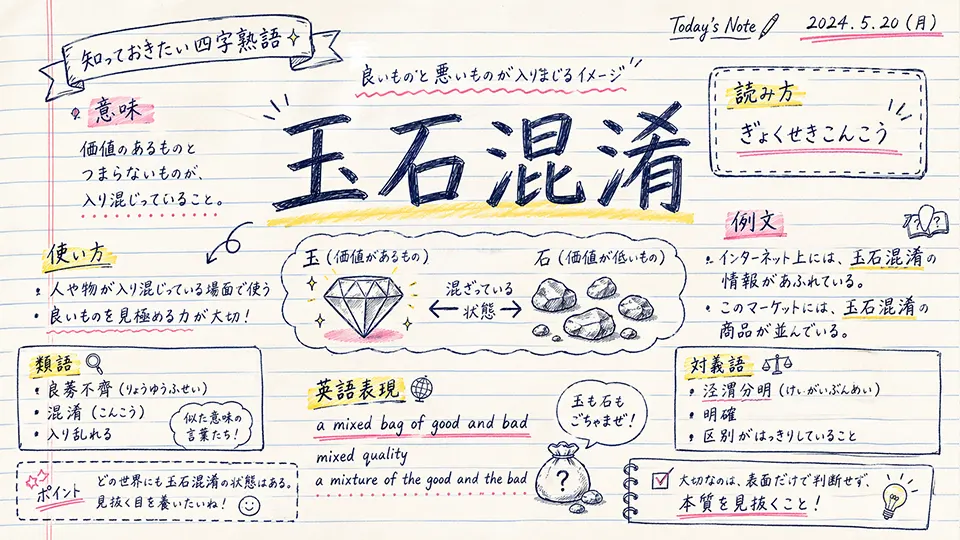 知っておきたい四字熟語
Today's Note
2024.5.20(月)
良いものと悪いものが入りまじるイメージ
玉石混淆
読み方
ぎょくせきこんこう
意味
価値のあるものと
つまらないものが、
入り混じっていること。
使い方
・人や物が入り混じっている場面で使う
・良いものを見極める力が大切!
玉(価値があるもの)
混ざっている
状態
石(価値が低いもの)
例文
・インターネット上には、玉石混淆の
情報があふれている。
・このマーケットには、玉石混淆の
商品が並んでいる。
類語
・良莠不齊(りょうゆうふせい)
・混淆(こんこう)
・入り乱れる
似た意味の
言葉たち!
英語表現
a mixed bag of good and bad
mixed quality
a mixture of the good and the bad
玉も石も
ごちゃまぜ!
?
対義語
・泾渭分明(けいがいぶんめい)
・明確
・区別がはっきりしていること
ポイント
どの世界にも玉石混淆の状態はある。
見抜く目を養いたいね!
大切なのは、表面だけで判断せず、
本質を見抜くこと!